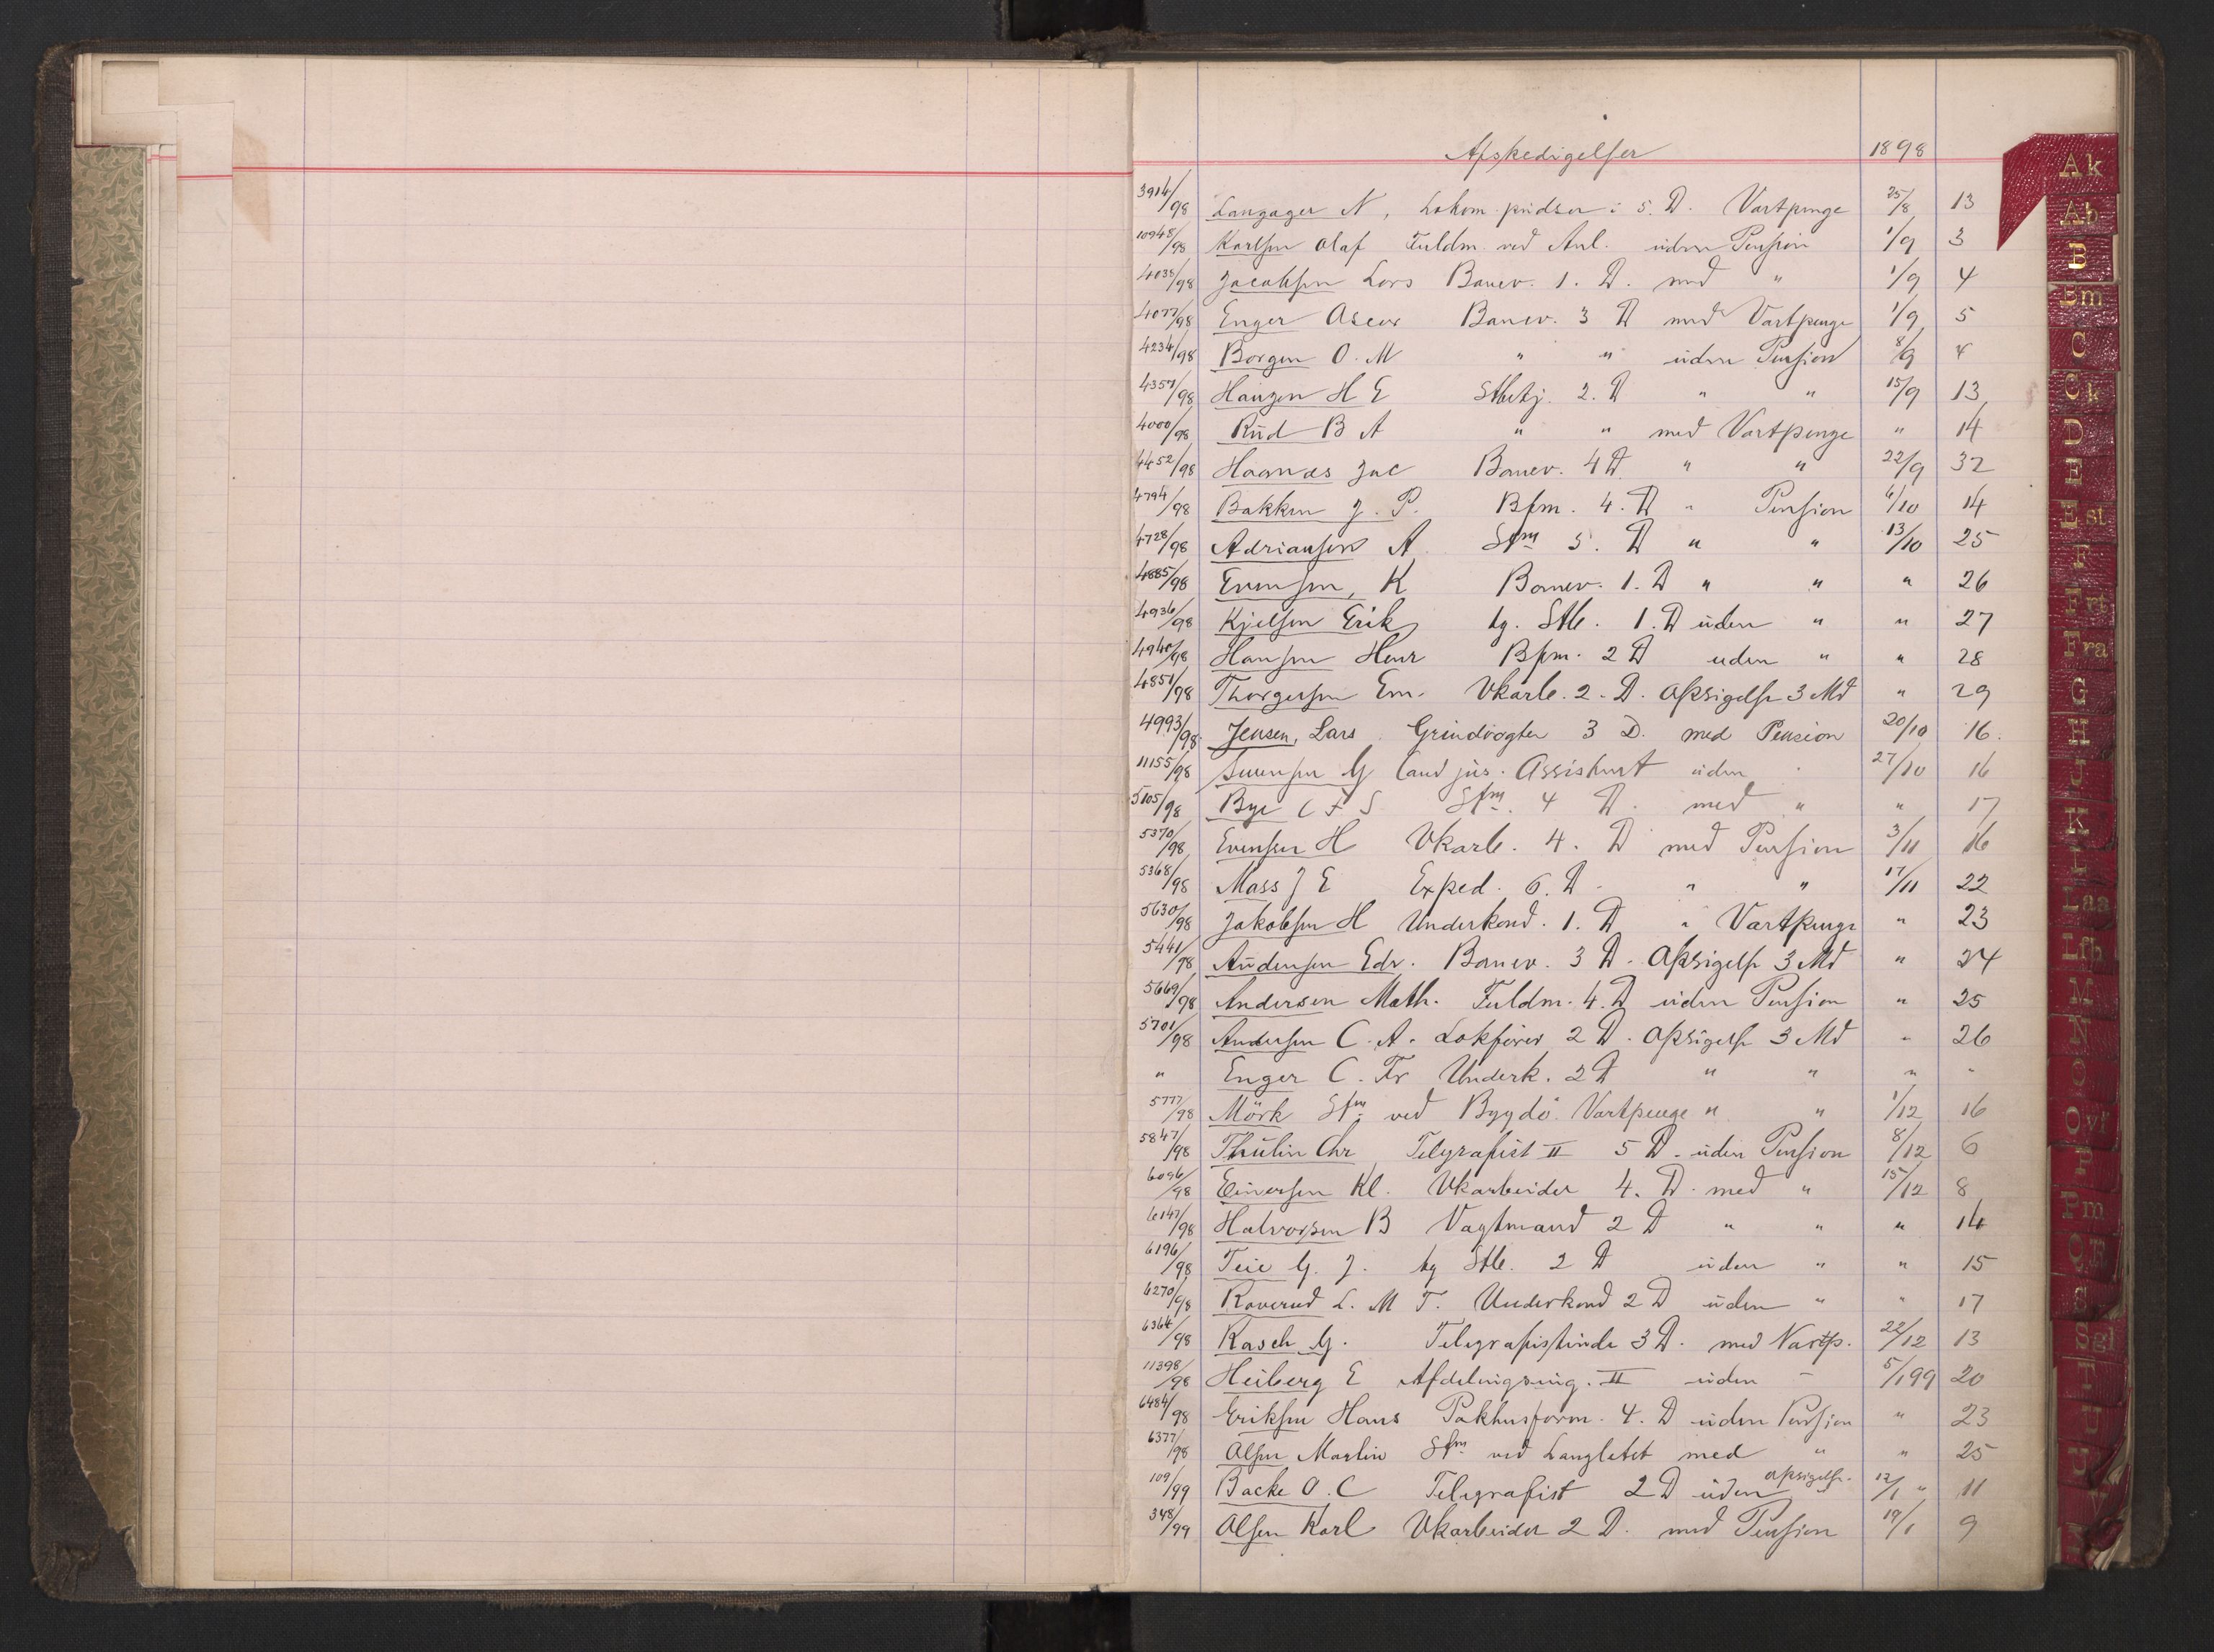 Afskedigelser 1898
3914/98 Langager N, Lokom. pudser i 5. D. Vartpenge 25/8 13
10948/98 Karlsen Olaf Fuldm. ved Anl. uden Pension 1/9 3
4038/98 Jacobsen Lars Banev. 1. D. med " 1/9 4
4077/98 Enger Oscar Banev. 3 D med Vartpenge 1/9 5
4234/98 Borgen O. M " " uden Pension 8/9 4
4357/98 Hansen H E Stbetj. 2. D " " 15/9 13
4000/98 Rud B A " " med Vartpenge " 14
4452/98 Haanæs Jac Banev. 4 D " " 22/9 32
4794/98 Bakken J. P. Bfm. 4. D " Pension 6/10 14
4728/98 Adriansen A Stm 5. D " " 13/10 25
4885/98 Evensen, K Banev. 1. D " " " 26
4936/98 Kjelsen Erik tg. Stb. 1. D uden " " 27
4940/98 Hansen Henr Bfm. 2 D uden " " 28
4851/98 Thorgersen Em. Vkarb. 2. D. Opsigelse 3 Md " 29
4993/98 Jensen, Lars. Grindvogter 3 D. med Pension 20/10 16.
11155/98 Svensen G Cand jur. Assistent uden " 27/10 16
5105/98 Bye C F S Stm. 4 D. med " " 17
5370/98 Evensen H Vkarb. 4. D med Pension 3/11 16
5368/98 Mass J E Exped. 6. D. " " 17/11 22
5630/98 Jakobsen H Underkond. 1. D " Vartpenge " 23
5441/98 Andersen Edv. Banev. 3 D. Opsigelse 3 Md " 24
5669/98 Andersen Math. Fuldm. 4. D uden Pension " 25
5701/98 Andersen C. A. Lokfører 2 D. Opsigelse 3 Md " 26
" Enger C. Fr Underk. 2 D " " " "
5777/98 Mörk Stm. ved Bygdö. Vartpenge " " 1/12 16
5847/98 Thulin Chr Telegrafist II 5 D. uden Pension 8/12 6
6096/98 Einersen Kl. Vkarbeider 4. D. med " 15/12 8
6147/98 Halvorsen B Vagtmand 2 D " " " 14
6196/98 Teie G. J. tg Stb. 2 D uden " " 15
6270/98 Raverud L. M T. Underkond 2 D uden " " 17
6364/98 Rasch G. Telegrafistinde 3 D. med Vartp. 22/12 13
11398/98 Heiberg E Afdelingsing. II uden – 5/1 99 20
6484/98 Eriksen Hans Pakhusform. 4. D uden Pension " 23
6377/98 Olsen Martin Stm. ved Langletet med " " 25
109/99 Backe O. C Telegrafist 2 D uden opsigelse. " 12/1 " 11
348/99 Olsen Karl Vkarbeider 2 D. med Pension 19/1 9
Ak
Ab
B
Bm
C
Ck
D
E
Est
F
Fra
G
H
J
K
L
Laa
Lfh
M
N
O
Ovf
P
Pm
S
Sgl
T
U
V